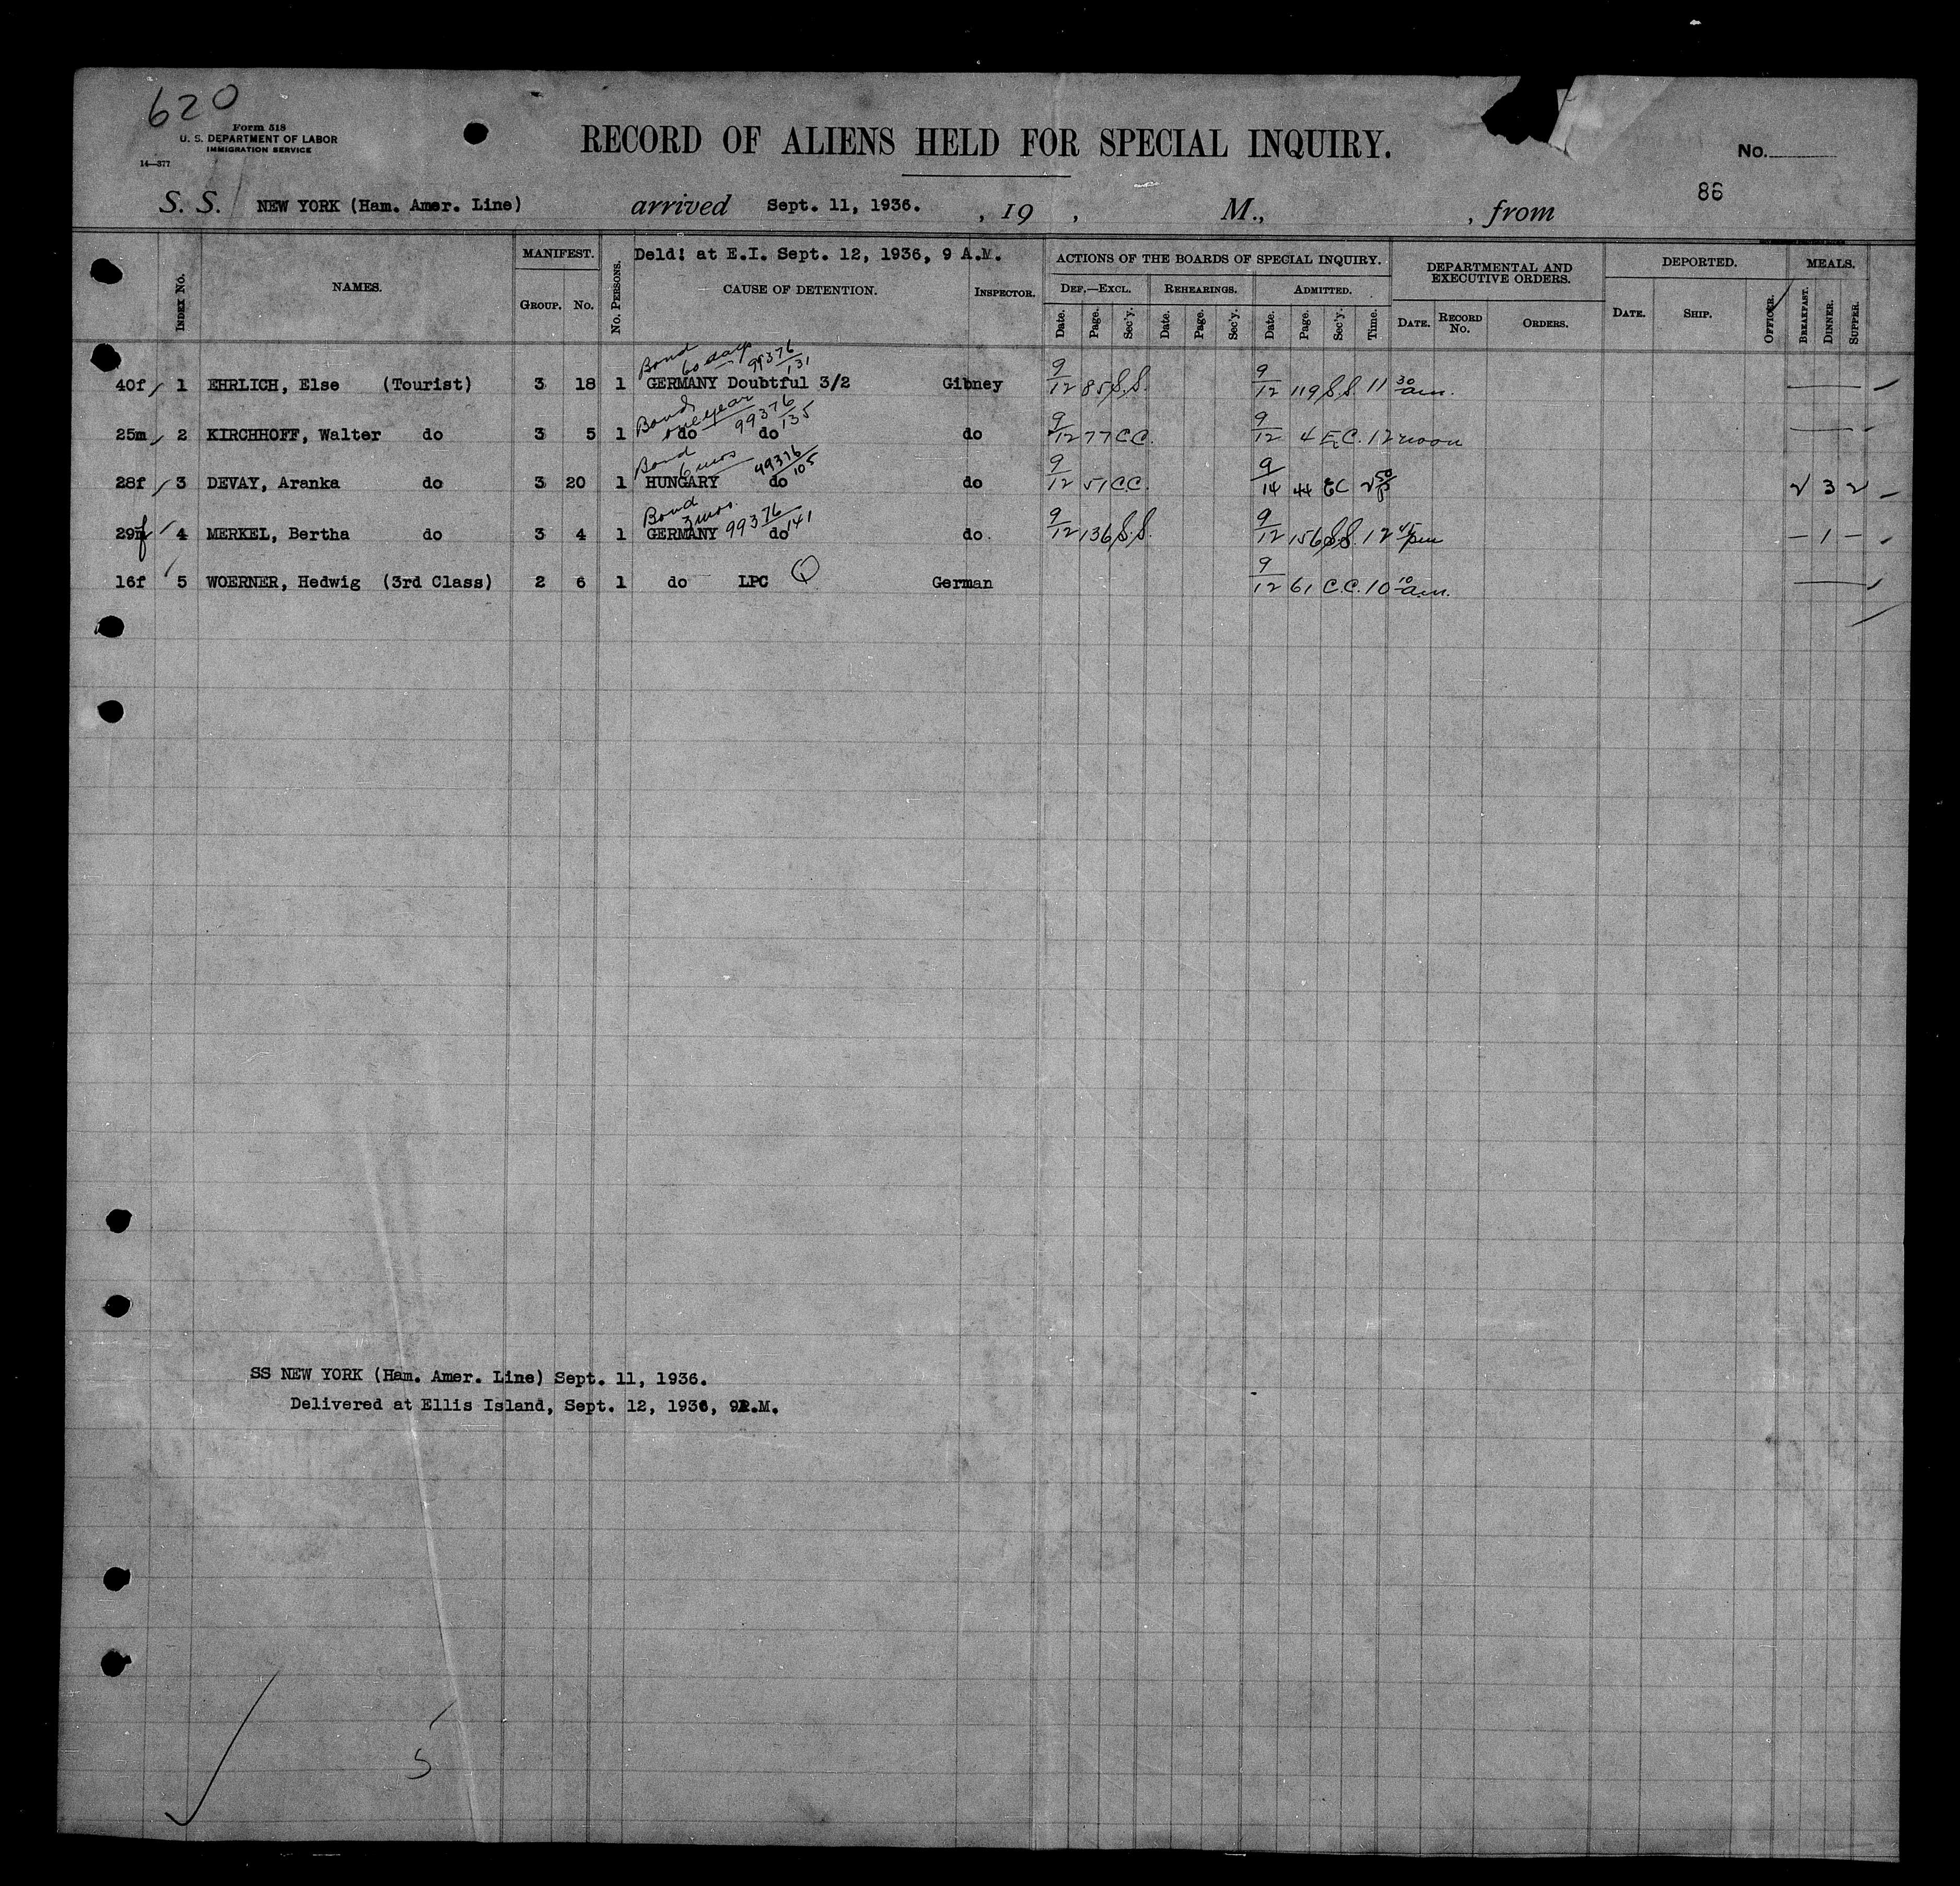 620
Form 518
U. S. DEPARTMENT OF LABOR
IMMIGRATION SERVICE
14—377
RECORD OF ALIENS HELD FOR SPECIAL INQUIRY.
No.
86
S. S. NEW YORK (Ham. Amer. Line) arrived Sept. 11, 1936. , 19 , M., , from
Deld: at E.I. Sept. 12, 1936, 9 A.M.
INDEX No. NAMES. MANIFEST. GROUP. No. No. PERSONS. CAUSE OF DETENTION. INSPECTOR. ACTIONS OF THE BOARDS OF SPECIAL INQUIRY. DEF.—EXCL. Date. Page. Sec'y. REHEARINGS. Date. Page. Sec'y. ADMITTED. Date. Page. Sec'y. Time. DEPARTMENTAL AND EXECUTIVE ORDERS. DATE. RECORD No. ORDERS. DEPORTED. DATE. SHIP. OFFICER. MEALS. BREAKFAST. DINNER. SUPPER.
Bond 60 days 99376/131
40f 1 EHRLICH, Else (Tourist) 3 18 1 GERMANY Doubtful 3/2 Gibney 9/12 85 S.S. 9/12 119 S.S. 11 30 am. —
Bond one year 99376/135
25m 2 KIRCHHOFF, Walter do 3 5 1 do do do 9/12 77 C.C. 9/12 4 E.C. 12 noon —
Bond 6 mos 99376/105
28f 3 DEVAY, Aranka do 3 20 1 HUNGARY do do 9/12 51 C.C. 9/14 44 EC 2 50 p 2 3 2
Bond 3 mos. 99376/141
29f 4 MERKEL, Bertha do 3 4 1 GERMANY do do. 9/12 136 S.S. 9/12 156 S.S. 12 45 pm — 1 —
16f 5 WOERNER, Hedwig (3rd Class) 2 6 1 do LPC Q German 9/12 61 C.C. 10 10 am. —
SS NEW YORK (Ham. Amer. Line) Sept. 11, 1936.
Delivered at Ellis Island, Sept. 12, 1936, 9A.M.
5